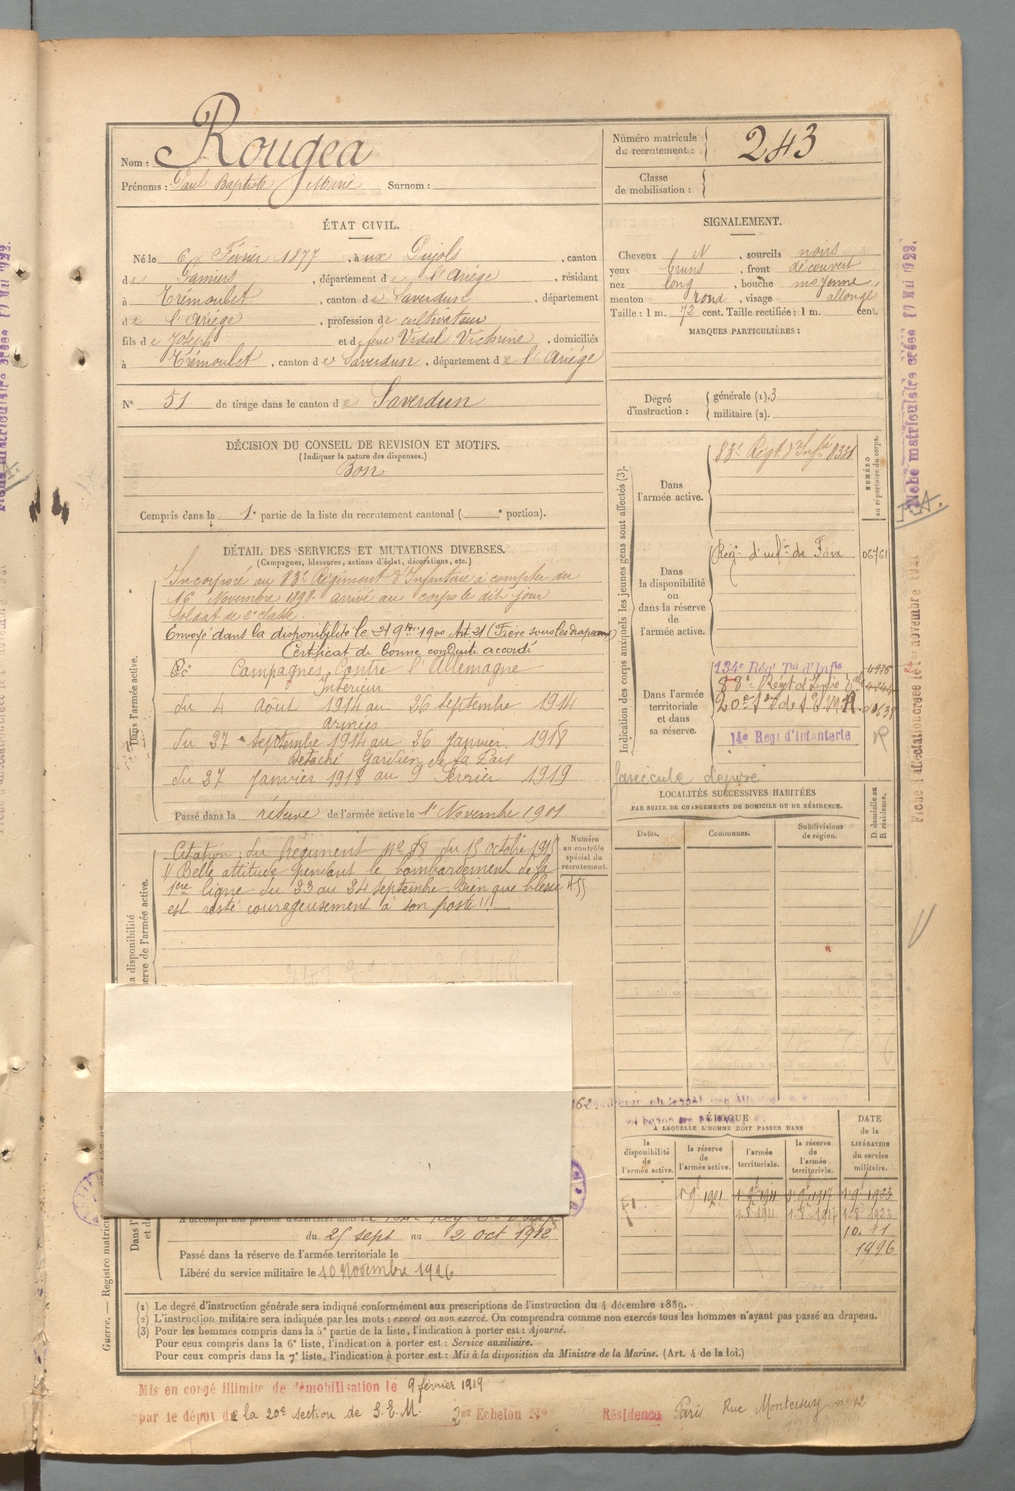 Nom : Rougea
Prénoms : Paul Baptiste Marie Surnom :
Numéro matricule du recrutement : 243
Classe de mobilisation :
ÉTAT CIVIL.
Né le 6 Février 1877, à ux Pujols, canton
de Pamiers, département de l'Ariège, résidant
à Trémoulet, canton de Saverdun, département
de l'Ariège, profession de cultivateur
fils de Joseph et de feue Vidal Victorine, domiciliés
à Trémoulet, canton de Saverdun, département de l'Ariège
N° 51 de tirage dans le canton de Saverdun
SIGNALEMENT.
Cheveux N, sourcils noirs
yeux bruns, front découvert
nez long, bouche moyenne
menton rond, visage allongé
Taille : 1 m. 72 cent. Taille rectifiée : 1 m. cent.
MARQUES PARTICULIÈRES :
Degré d'instruction : générale (1). 3
militaire (2).
DÉCISION DU CONSEIL DE REVISION ET MOTIFS.
(Indiquer la nature des dispenses.)
Bon
Compris dans la 1e partie de la liste du recrutement cantonal ( e portion).
DÉTAIL DES SERVICES ET MUTATIONS DIVERSES.
(Campagnes, blessures, actions d'éclat, décorations, etc.)
Dans l'armée active.
Incorporé au 83e Régiment d'Infanterie à compter du
16 Novembre 1898. arrivé au corps le dit jour
Soldat de 2e classe.
Envoyé dans la disponibilité le 21 9bre 1900 Art. 21 (Frère sous les drapeaux)
Certificat de bonne conduite accordé
Campagnes Contre l'Allemagne
Intérieur
du 4 Août 1914 au 26 septembre 1914
Armées
du 27 septembre 1914 au 26 janvier 1918
détaché Gardien de la Paix
du 27 janvier 1918 au 9 février 1919
Passé dans la réserve de l'armée active le 1er Novembre 1901
Citation : du Régiment n° 58 du 15 octobre 1915
"Belle attitude pendant le bombardement de la
1ère ligne du 23 au 24 septembre. Bien que blessé
est resté courageusement à son poste"
Numéro au contrôle spécial du recrutement.
455
Indication des corps auxquels les jeunes gens sont affectés (3).
NUMÉRO au répertoire du corps.
Dans l'armée active.
83e Régt d'Infie 8331
Dans la disponibilité ou dans la réserve de l'armée active.
Régt d'infie de Foix 06761
Dans l'armée territoriale et dans sa réserve.
134e Régt Tal d'Infie
14e Régt d'infanterie
fascicule déposé
LOCALITÉS SUCCESSIVES HABITÉES
PAR SUITE DE CHANGEMENTS DE DOMICILE OU DE RÉSIDENCE.
Dates.
Communes.
Subdivisions de région.
D. domicile ou R. résidence.
ÉPOQUE
À LAQUELLE L'HOMME DOIT PASSER DANS
la disponibilité de l'armée active.
la réserve de l'armée active.
l'armée territoriale.
la réserve de l'armée territoriale.
DATE de la LIBÉRATION du service militaire.
1er 9bre 1901 1er 9bre 1911 1er 9bre 1917 1er 9bre 1923
10. 11
1926
du 25 sept au 2 oct 1912
Passé dans la réserve de l'armée territoriale le
Libéré du service militaire le 10 Novembre 1926
(1) Le degré d'instruction générale sera indiqué conformément aux prescriptions de l'instruction du 4 décembre 1889.
(2) L'instruction militaire sera indiquée par les mots : exercé ou non exercé. On comprendra comme non exercés tous les hommes n'ayant pas passé au drapeau.
(3) Pour les hommes compris dans la 5e partie de la liste, l'indication à porter est : Ajourné.
Pour ceux compris dans la 6e liste, l'indication à porter est : Service auxiliaire.
Pour ceux compris dans la 7e liste, l'indication à porter est : Mis à la disposition du Ministre de la Marine. (Art. 4 de la loi.)
Mis en congé illimité de démobilisation le 9 février 1919
par le dépôt de la 20e section de S.E.M. 2e Echelon N° Résidence Paris Rue n° 12
Guerre. — Registre matricu
Fiche matriculaire créée 17 Mai 1922.